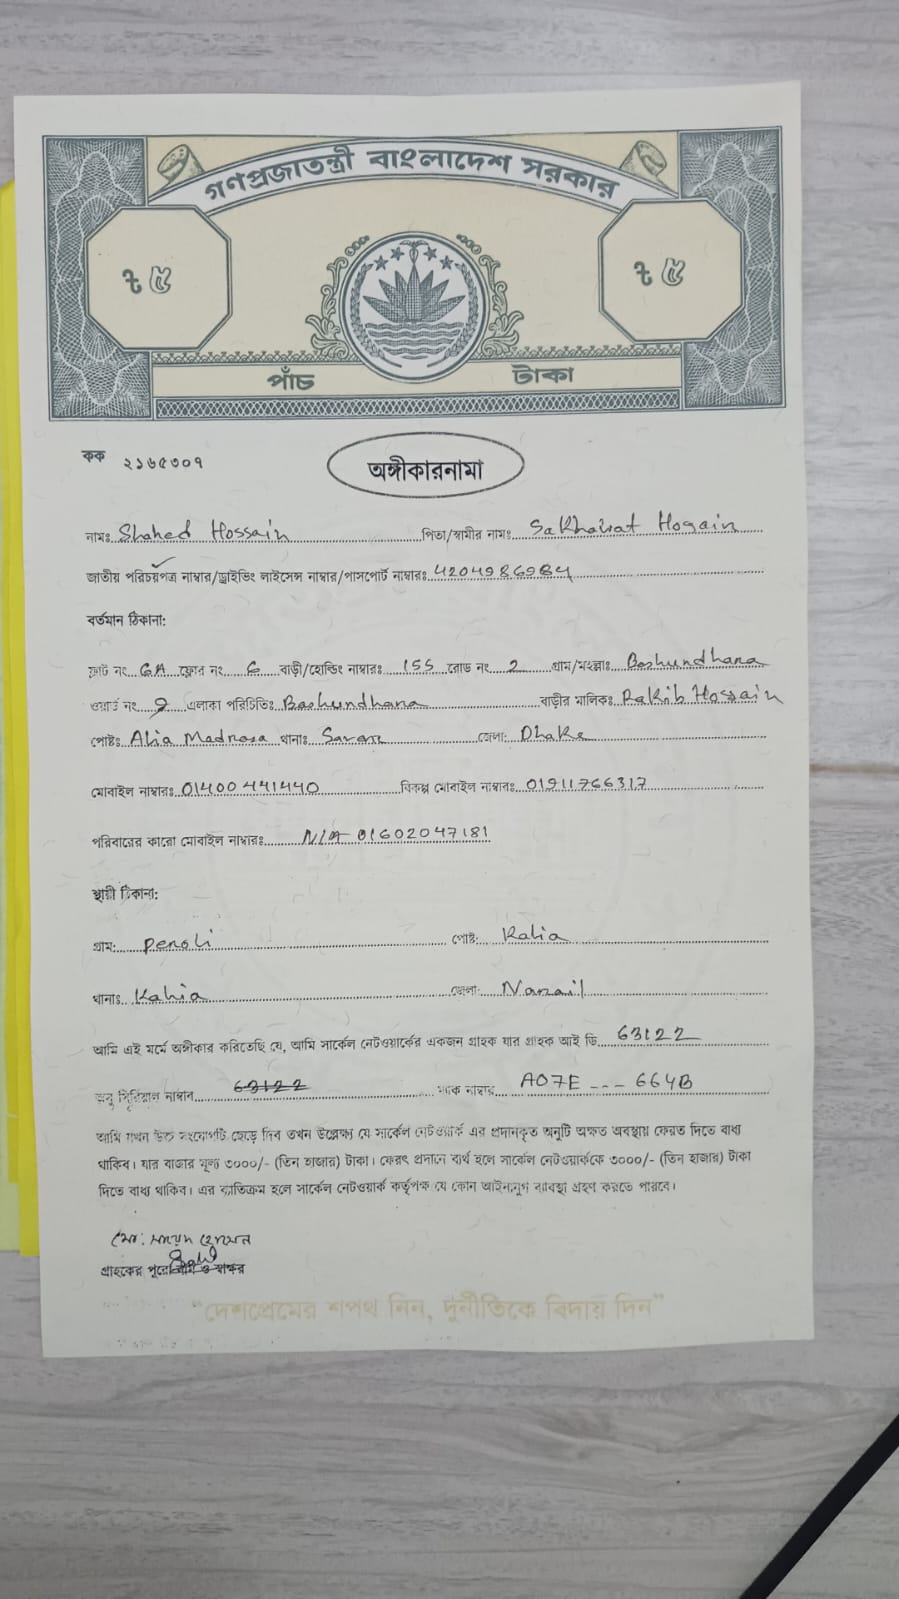 গণপ্রজাতন্ত্রী বাংলাদেশ সরকার
৳ ৫ ৳ ৫
পাঁচ টাকা
কক ২১৬৫৩০৭
অঙ্গীকারনামা
নামঃ Shahed Hossain পিতা/স্বামীর নামঃ Sakhawat Hosain
জাতীয় পরিচয়পত্র নাম্বার/ড্রাইভিং লাইসেন্স নাম্বার/পাসপোর্ট নাম্বারঃ
বর্তমান ঠিকানা:
ফ্লাট নং 6A ফ্লোর নং 6 বাড়ী/হোল্ডিং নাম্বারঃ 155 রোড নং 2 গ্রাম/মহল্লাঃ Bashundhara
ওয়ার্ড নং 9 এলাকা পরিচিতিঃ Bashundhara বাড়ীর মালিকঃ Rakib Hossain
পোষ্টঃ Alia Madrasa থানাঃ Savar জেলা: Dhaka
মোবাইল নাম্বারঃ 01400441440 বিকল্প মোবাইল নাম্বারঃ 01911766317
পরিবারের কারো মোবাইল নাম্বারঃ N/A 01602047181
স্থায়ী ঠিকানা:
গ্রাম: Peroli পোষ্ট: Kalia
থানাঃ Kalia জেলা: Narail
আমি এই মর্মে অঙ্গীকার করিতেছি যে, আমি সার্কেল নেটওয়ার্কের একজন গ্রাহক যার গ্রাহক আই ডি 63122
অনু সিরিয়াল নাম্বার 63122 ম্যাক নাম্বার A07E --- 664B
আমি যখন উক্ত সংযোগটি ছেড়ে দিব তখন উল্লেক্ষ্য যে সার্কেল নেটওয়ার্ক এর প্রদানকৃত অনুটি অক্ষত অবস্থায় ফেরত দিতে বাধ্য
থাকিব। যার বাজার মূল্য ৩০০০/- (তিন হাজার) টাকা। ফেরৎ প্রদানে ব্যর্থ হলে সার্কেল নেটওয়ার্ককে ৩০০০/- (তিন হাজার) টাকা
দিতে বাধ্য থাকিব। এর ব্যতিক্রম হলে সার্কেল নেটওয়ার্ক কর্তৃপক্ষ যে কোন আইনানুগ ব্যবস্থা গ্রহণ করতে পারবে।
মো: সাহেদ হোসেন
গ্রাহকের পুরো নাম ও স্বাক্ষর
“দেশপ্রেমের শপথ নিন, দুর্নীতিকে বিদায় দিন”